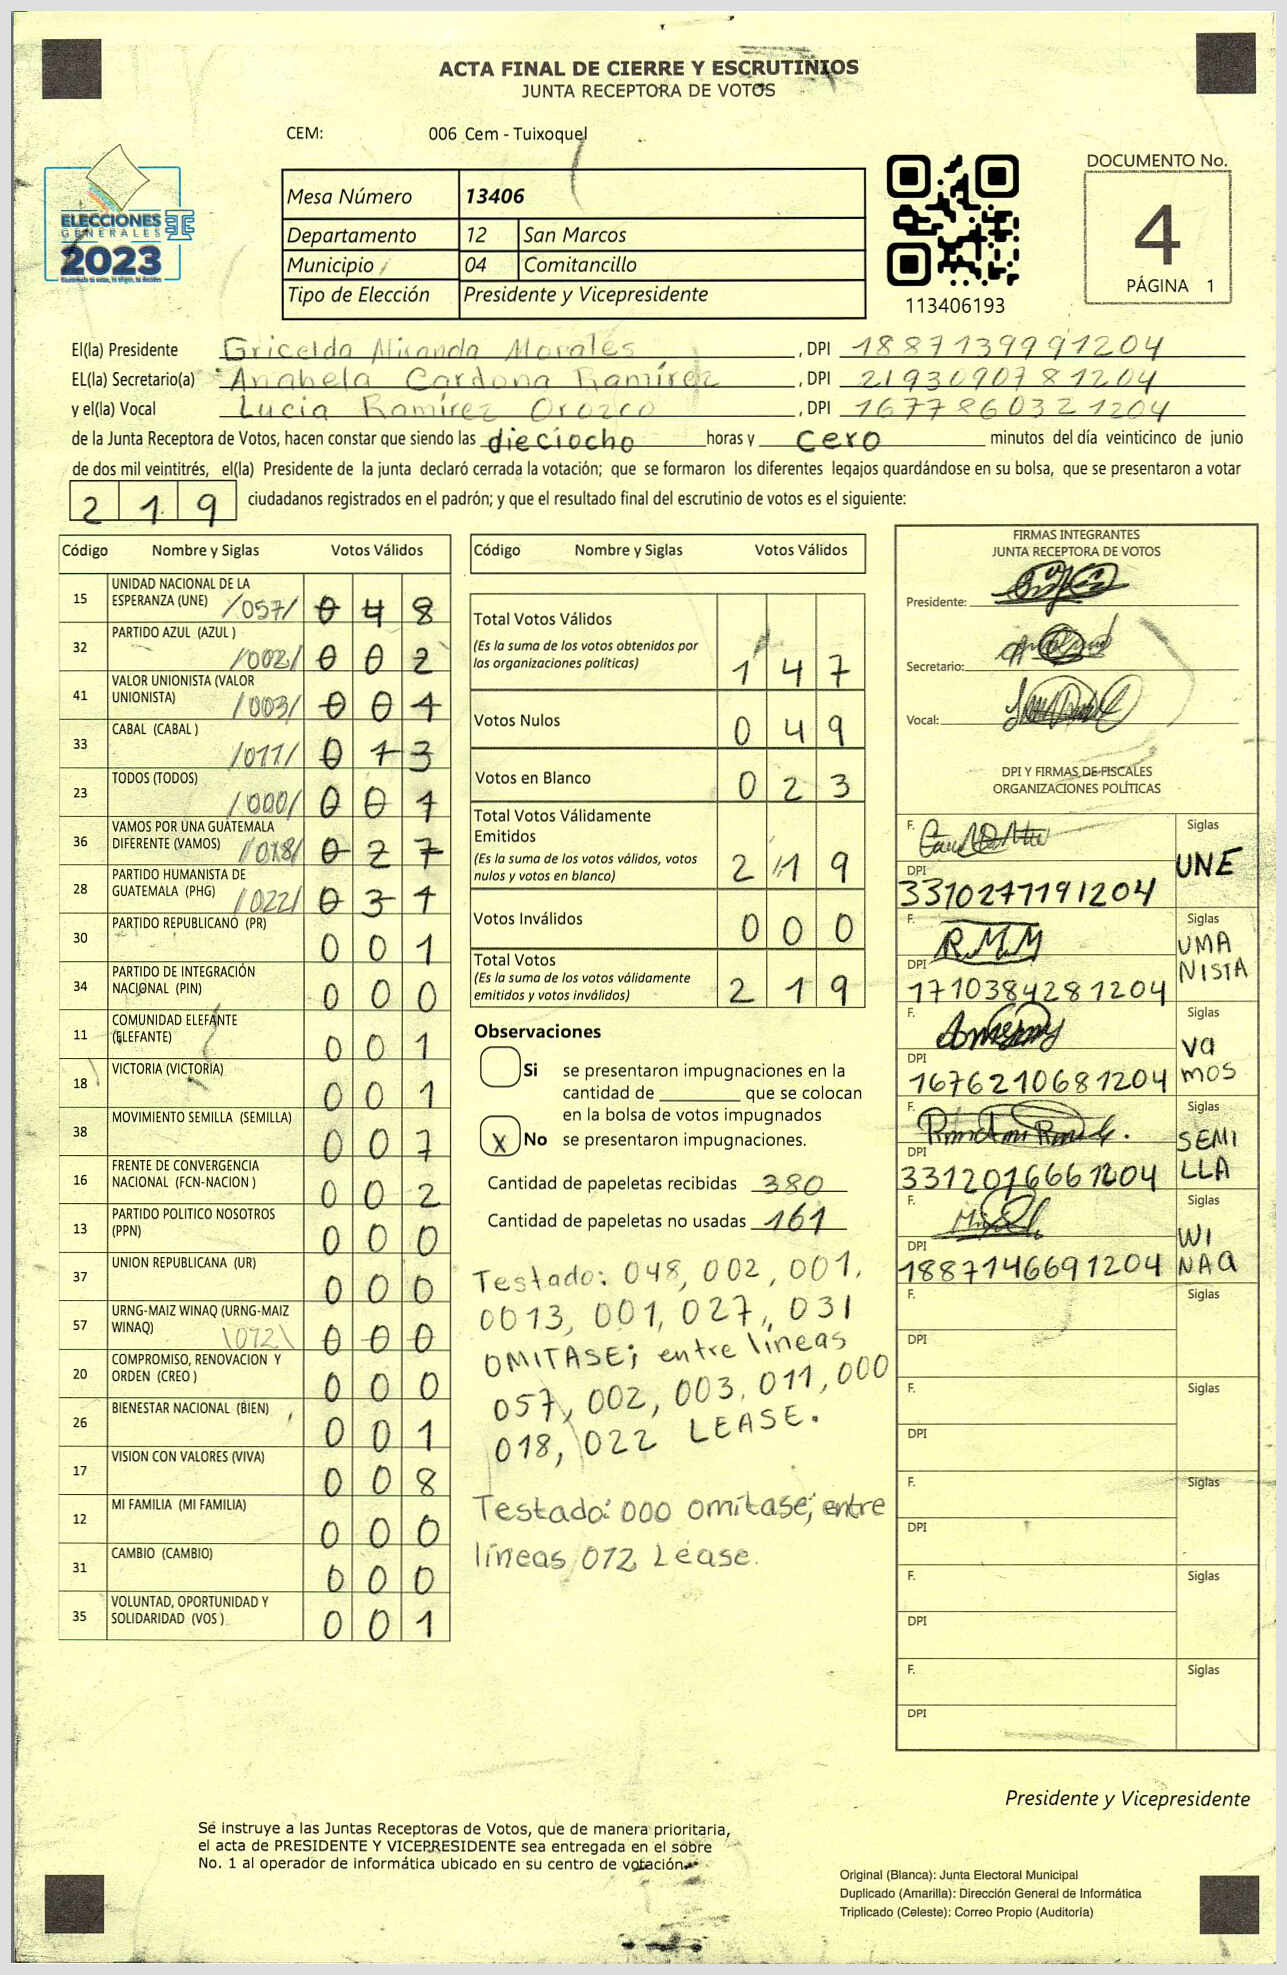 ACTA FINAL DE CIERRE Y ESCRUTINIOS
JUNTA RECEPTORA DE VOTOS
CEM: 006 Cem - Tuixoquel
ELECCIONES
GENERALES
2023
Mesa Número 13406
Departamento 12 San Marcos
Municipio 04 Comitancillo
Tipo de Elección Presidente y Vicepresidente
113406193
DOCUMENTO No.
4
PÁGINA 1
El(la) Presidente Gricelda Miranda Morales, DPI 1887139991204
EL(la) Secretario(a) Anabela Cardona Ramírez, DPI 2193090781204
y el(la) Vocal Lucia Ramírez Orozco, DPI 1677860321204
de la Junta Receptora de Votos, hacen constar que siendo las dieciocho horas y cero minutos del día veinticinco de junio
de dos mil veintitrés, el(la) Presidente de la junta declaró cerrada la votación; que se formaron los diferentes legajos quardándose en su bolsa, que se presentaron a votar
2 1 9 ciudadanos registrados en el padrón; y que el resultado final del escrutinio de votos es el siguiente:
Código Nombre y Siglas Votos Válidos
15 UNIDAD NACIONAL DE LA
ESPERANZA (UNE) /057/ 0 4 8
32 PARTIDO AZUL (AZUL )
/002/ 0 0 2
41 VALOR UNIONISTA (VALOR
UNIONISTA) /003/ 0 0 1
33 CABAL (CABAL )
/011/ 0 1 3
23 TODOS (TODOS)
/000/ 0 0 1
36 VAMOS POR UNA GUATEMALA
DIFERENTE (VAMOS) /018/ 0 2 7
28 PARTIDO HUMANISTA DE
GUATEMALA (PHG) /022/ 0 3 1
30 PARTIDO REPUBLICANO (PR) 0 0 1
34 PARTIDO DE INTEGRACIÓN
NACIONAL (PIN) 0 0 0
11 COMUNIDAD ELEFANTE
(ELEFANTE) 0 0 1
18 VICTORIA (VICTORIA) 0 0 1
38 MOVIMIENTO SEMILLA (SEMILLA) 0 0 7
16 FRENTE DE CONVERGENCIA
NACIONAL (FCN-NACION ) 0 0 2
13 PARTIDO POLITICO NOSOTROS
(PPN) 0 0 0
37 UNION REPUBLICANA (UR) 0 0 0
57 URNG-MAIZ WINAQ (URNG-MAIZ
WINAQ) \012\ 0 0 0
20 COMPROMISO, RENOVACION Y
ORDEN (CREO ) 0 0 0
26 BIENESTAR NACIONAL (BIEN) 0 0 1
17 VISION CON VALORES (VIVA) 0 0 8
12 MI FAMILIA (MI FAMILIA) 0 0 0
31 CAMBIO (CAMBIO) 0 0 0
35 VOLUNTAD, OPORTUNIDAD Y
SOLIDARIDAD (VOS ) 0 0 1
Código Nombre y Siglas Votos Válidos
Total Votos Válidos
(Es la suma de los votos obtenidos por
las organizaciones políticas) 1 4 7
Votos Nulos 0 4 9
Votos en Blanco 0 2 3
Total Votos Válidamente
Emitidos
(Es la suma de los votos válidos, votos
nulos y votos en blanco) 2 1 9
Votos Inválidos 0 0 0
Total Votos
(Es la suma de los votos válidamente
emitidos y votos inválidos) 2 1 9
Observaciones
Si se presentaron impugnaciones en la
cantidad de ________ que se colocan
en la bolsa de votos impugnados
X No se presentaron impugnaciones.
Cantidad de papeletas recibidas 380
Cantidad de papeletas no usadas 161
Testado: 048, 002, 001,
0013, 001, 027, 031
OMITASE; entre líneas
057, 002, 003, 011, 000
018, 022 LEASE.
Testado: 000 omítase; entre
líneas 012 Léase.
FIRMAS INTEGRANTES
JUNTA RECEPTORA DE VOTOS
Presidente:
Secretario:
Vocal:
DPI Y FIRMAS DE FISCALES
ORGANIZACIONES POLÍTICAS
F. Siglas
UNE
DPI
3310277191204
F. R.M.M Siglas
UMA
NISTA
DPI
1710384281204
F. Siglas
Va
mos
DPI
1676210681204
F. Siglas
SEMI
LLA
DPI
3312016661204
F. Siglas
WI
NAQ
DPI
1887146691204
F. Siglas
DPI
F. Siglas
DPI
F. Siglas
DPI
F. Siglas
DPI
F. Siglas
DPI
Presidente y Vicepresidente
Se instruye a las Juntas Receptoras de Votos, que de manera prioritaria,
el acta de PRESIDENTE Y VICEPRESIDENTE sea entregada en el sobre
No. 1 al operador de informática ubicado en su centro de votación.
Original (Blanca): Junta Electoral Municipal
Duplicado (Amarilla): Dirección General de Informática
Triplicado (Celeste): Correo Propio (Auditoría)